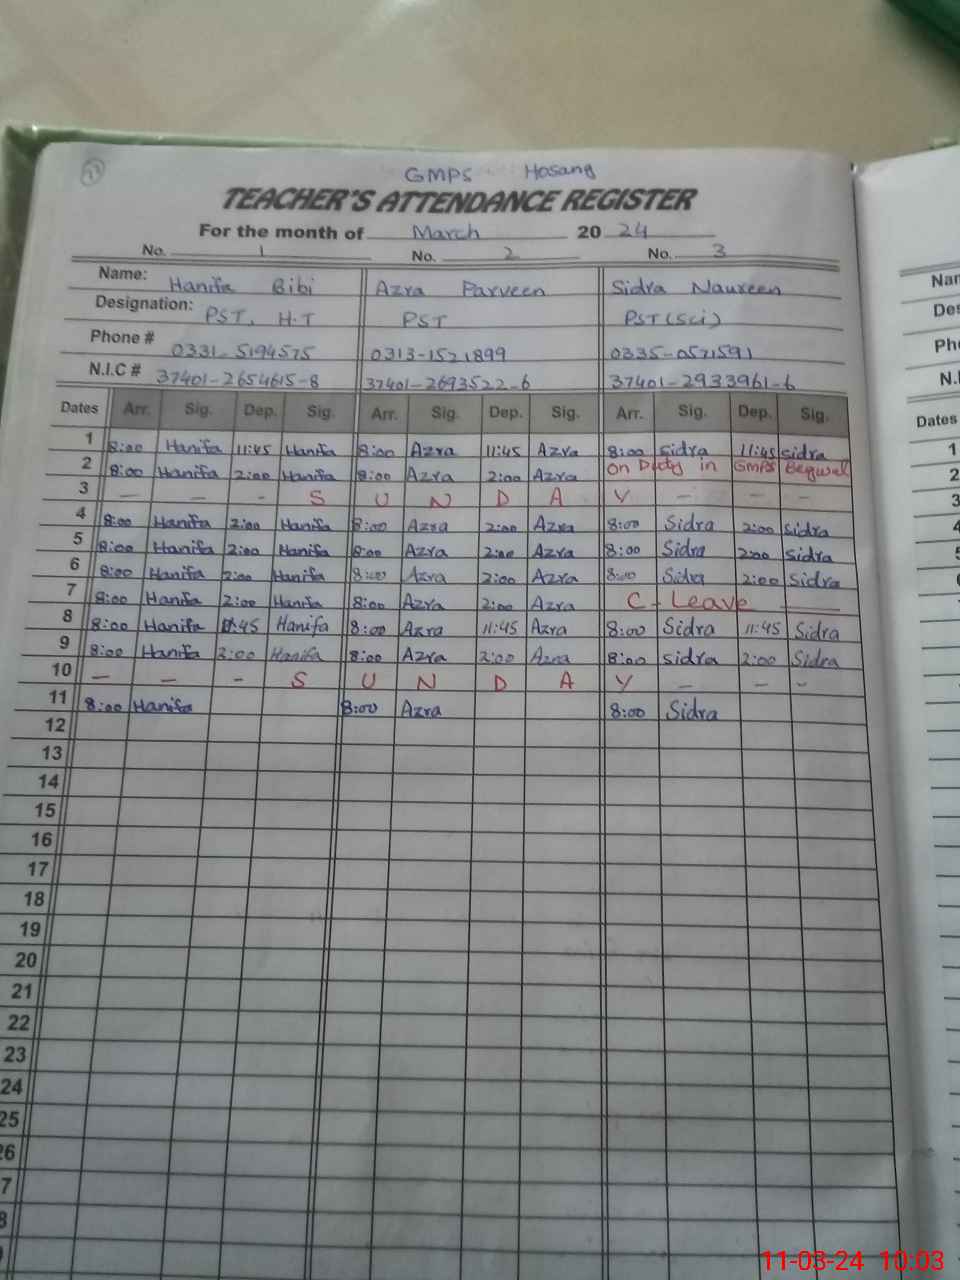 GMPS Hosang
TEACHER'S ATTENDANCE REGISTER
For the month of March 20 24
No. 1 No. 2 No. 3
Name: Hanifa Bibi Azra Parveen Sidra Naureen
Designation: PST, H.T PST PST (Sci)
Phone # 0331-5194575 0313-1521899 0335-0571591
N.I.C # 37401-2654615-8 37401-2693522-6 37401-2933961-6
Dates Arr. Sig. Dep. Sig. Arr. Sig. Dep. Sig. Arr. Sig. Dep. Sig.
1 8:00 Hanifa 11:45 Hanifa 8:00 Azra 11:45 Azra 8:00 Sidra 11:45 Sidra
2 8:00 Hanifa 2:00 Hanifa 8:00 Azra 2:00 Azra On Duty in GMPS Begwal
3 — — - S U N D A Y — — —
4 8:00 Hanifa 2:00 Hanifa 8:00 Azra 2:00 Azra 8:00 Sidra 2:00 Sidra
5 8:00 Hanifa 2:00 Hanifa 8:00 Azra 2:00 Azra 8:00 Sidra 2:00 Sidra
6 8:00 Hanifa 2:00 Hanifa 8:00 Azra 2:00 Azra 8:00 Sidra 2:00 Sidra
7 8:00 Hanifa 2:00 Hanifa 8:00 Azra 2:00 Azra C - Leave —
8 8:00 Hanifa 11:45 Hanifa 8:00 Azra 11:45 Azra 8:00 Sidra 11:45 Sidra
9 8:00 Hanifa 2:00 Hanifa 8:00 Azra 2:00 Azra 8:00 Sidra 2:00 Sidra
10 — — - S U N D A Y — — -
11 8:00 Hanifa 8:00 Azra 8:00 Sidra
12
13
14
15
16
17
18
19
20
21
22
23
24
25
26
7
8
Nam
Des
Pho
N.I.
Dates
1
2
3
4
5
11-03-24 10:03